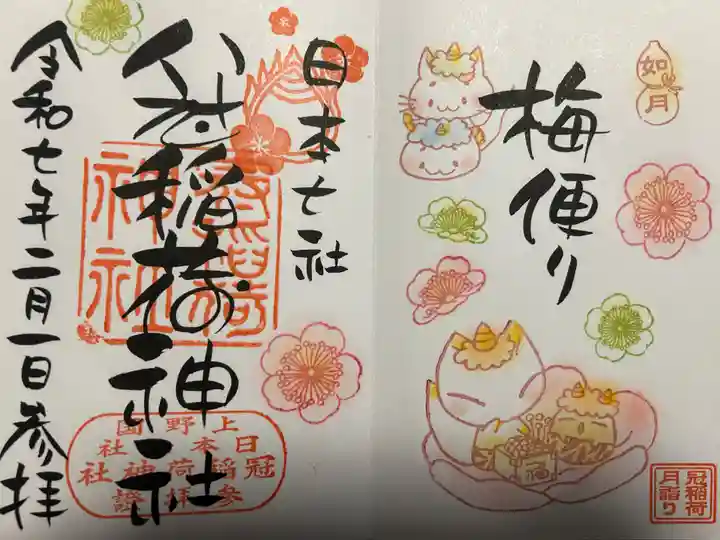 如月
梅便り
福
冠稲荷
月詣り
日本七社
冠稲荷神社
令和七年二月一日参拝
上野國
日本 社
冠稲荷神社
参拝證